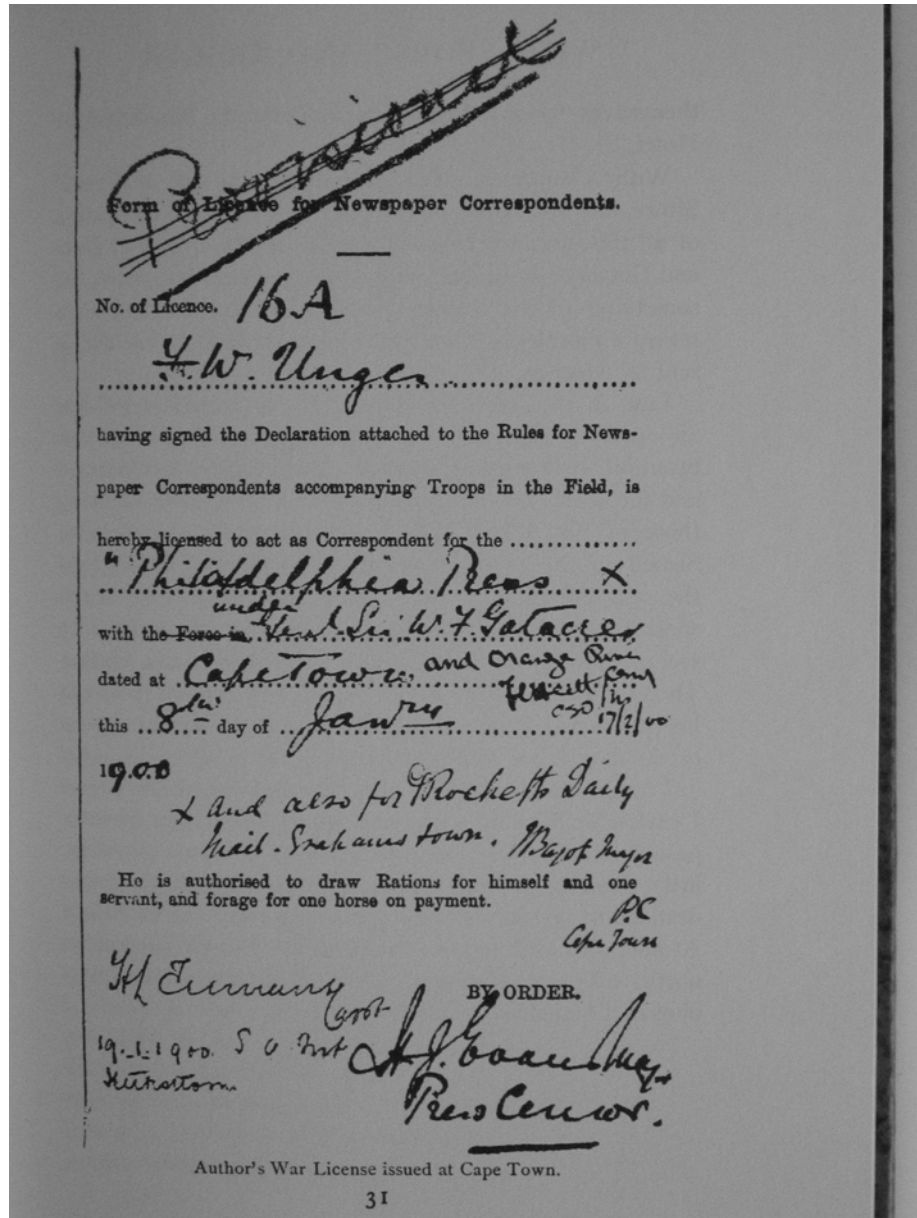 Provisional
Form of Licence for Newspaper Correspondents.
No. of Licence. 16A
F. W. Unger
having signed the Declaration attached to the Rules for News-
paper Correspondents accompanying Troops in the Field, is
hereby licensed to act as Correspondent for the
"Philadelphia Press X
under
with the Force in Genl. Sir W. F. Gatacre
dated at Cape Town. and Orange River
this 8th day of Jany 17/2/00
1900
x and also for Grocketts Daily
Mail. Grahamstown. Major
He is authorised to draw Rations for himself and one
servant, and forage for one horse on payment.
P.C
Cape Town
Capt
BY ORDER.
19.1.1900.
H. J. Evans Maj.
Press Censor.
Author's War License issued at Cape Town.
31